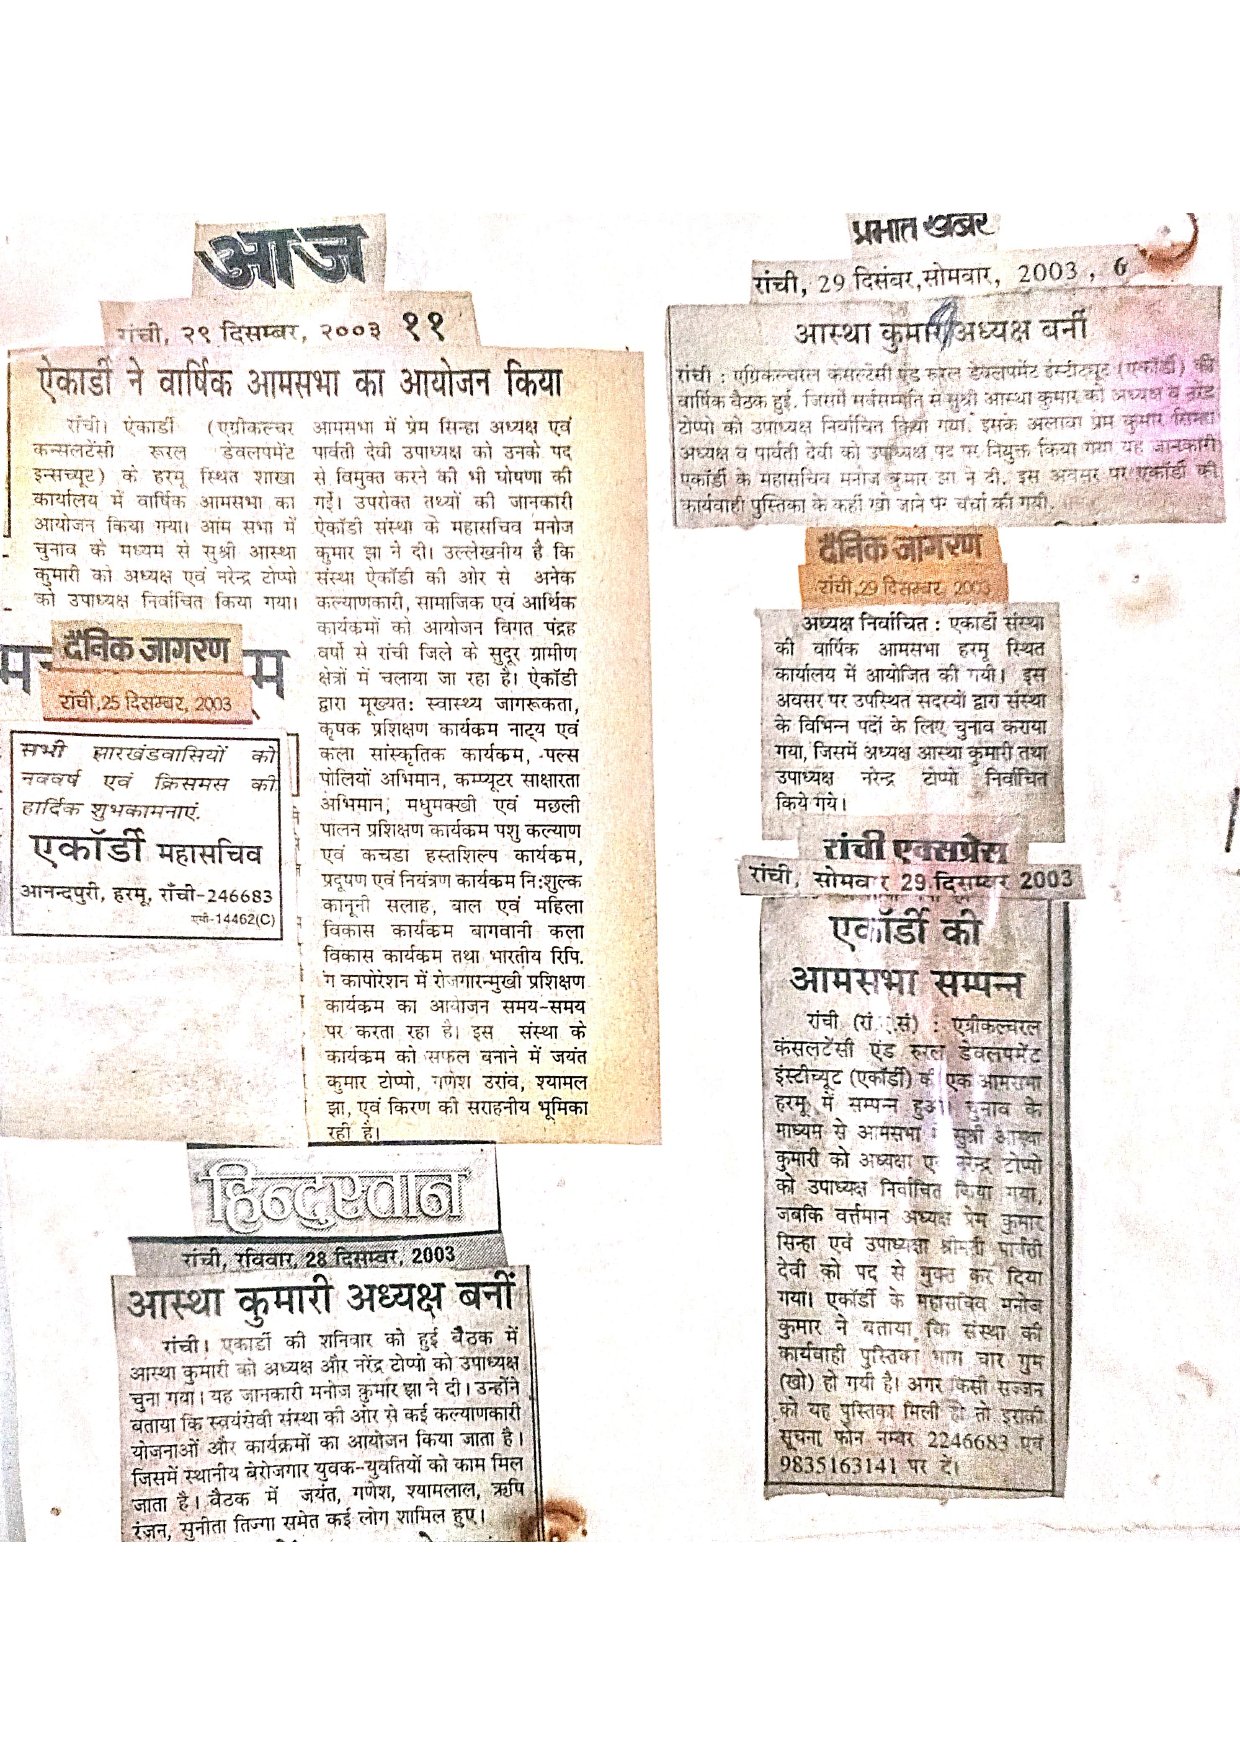 आज
रांची, २९ दिसम्बर, २००३ ११
ऐकार्डी ने वार्षिक आमसभा का आयोजन किया
राँची। एंकार्डी (एग्रीकल्चर
कन्सलटेंसी रूरल डेवलपमेंट
इन्सच्यूट) के हरमू स्थित शाखा
कार्यालय में वार्षिक आमसभा का
आयोजन किया गया। आम सभा में
चुनाव के मध्यम से सुश्री आस्था
कुमारी को अध्यक्ष एवं नरेन्द्र टोप्पो
को उपाध्यक्ष निर्वाचित किया गया।
आमसभा में प्रेम सिन्हा अध्यक्ष एवं
पार्वती देवी उपाध्यक्ष को उनके पद
से विमुक्त करने की भी घोषणा की
गई। उपरोक्त तथ्यों की जानकारी
ऐकॉडी संस्था के महासचिव मनोज
कुमार झा ने दी। उल्लेखनीय है कि
संस्था ऐकॉडी की ओर से अनेक
कल्याणकारी, सामाजिक एवं आर्थिक
कार्यकमों को आयोजन विगत पंद्रह
वर्षो से रांची जिले के सुदूर ग्रामीण
क्षेत्रों में चलाया जा रहा है। ऐकॉडी
द्वारा मूख्यत: स्वास्थ्य जागरूकता,
कृषक प्रशिक्षण कार्यकम नाट्य एवं
कला सांस्कृतिक कार्यकम, पल्स
पोलियों अभिमान, कम्प्यूटर साक्षारता
अभिमान, मधुमक्खी एवं मछली
पालन प्रशिक्षण कार्यकम पशु कल्याण
एवं कचडा हस्तशिल्प कार्यकम,
प्रदूषण एवं नियंत्रण कार्यकम नि:शुल्क
कानूनी सलाह, बाल एवं महिला
विकास कार्यकम बागवानी कला
विकास कार्यकम तथा भारतीय रिपि.
ग कार्पोरेशन में रोजगारन्मुखी प्रशिक्षण
कार्यकम का आयोजन समय-समय
पर करता रहा है। इस संस्था के
कार्यकम को सफल बनाने में जयंत
कुमार टोप्पो, गणेश उरांव, श्यामल
झा, एवं किरण की सराहनीय भूमिका
रही है।
दैनिक जागरण
रांची,25 दिसम्बर, 2003
सभी झारखंडवासियों को
नववर्ष एवं क्रिसमस की
हार्दिक शुभकामनाएं.
एकॉर्डी महासचिव
आनन्दपुरी, हरमू, राँची-246683
एसी-14462(C)
हिन्दुस्तान
रांची, रविवार, 28 दिसम्बर, 2003
आस्था कुमारी अध्यक्ष बनीं
रांची। एकार्डी की शनिवार को हुई बैठक में
आस्था कुमारी को अध्यक्ष और नरेंद्र टोप्पो को उपाध्यक्ष
चुना गया। यह जानकारी मनोज कुमार झा ने दी। उन्होंने
बताया कि स्वयंसेवी संस्था की ओर से कई कल्याणकारी
योजनाओं और कार्यक्रमों का आयोजन किया जाता है।
जिसमें स्थानीय बेरोजगार युवक-युवतियों को काम मिल
जाता है। बैठक में जयंत, गणेश, श्यामलाल, ऋषि
रंजन, सुनीता तिग्गा समेत कई लोग शामिल हुए।
प्रभात खबर
रांची, 29 दिसंबर,सोमवार, 2003 , 6
आस्था कुमारी अध्यक्ष बनीं
रांची : एग्रिकल्चरल कंसल्टेंसी एंड रूरल डेवलपमेंट इंस्टीट्यूट (एकॉर्डी) की
वार्षिक बैठक हुई. जिसमें सर्वसम्मति से सुश्री आस्था कुमार को अध्यक्ष व नरेंद्र
टोप्पो को उपाध्यक्ष निर्वाचित किया गया. इसके अलावा प्रेम कुमार सिन्हा
अध्यक्ष व पार्वती देवी को उपाध्यक्ष पद पर नियुक्त किया गया यह जानकारी
एकॉर्डी के महासचिव मनोज कुमार झा ने दी. इस अवसर पर एकॉर्डी की
कार्यवाही पुस्तिका के कहीं खो जाने पर चर्चा की गयी.
दैनिक जागरण
रांची,29 दिसम्बर, 2003
अध्यक्ष निर्वाचित : एकार्डी संस्था
की वार्षिक आमसभा हरमू स्थित
कार्यालय में आयोजित की गयी। इस
अवसर पर उपस्थित सदस्यों द्वारा संस्था
के विभिन्न पदों के लिए चुनाव कराया
गया, जिसमें अध्यक्ष आस्था कुमारी तथा
उपाध्यक्ष नरेन्द्र टोप्पो निर्वाचित
किये गये।
रांची एक्सप्रेस
रांची, सोमवार 29 दिसम्बर 2003
एकॉर्डी की
आमसभा सम्पन्न
रांची (रां.ऐसं) : एग्रीकल्चरल
कंसलटेंसी एंड रुरल डेवलपमेंट
इंस्टीच्यूट (एकॉर्डी) की एक आमसभा
हरमू में सम्पन्न हुआ। चुनाव के
माध्यम से आमसभा में सुश्री आस्था
कुमारी को अध्यक्षा एवं नरेन्द्र टोप्पो
को उपाध्यक्ष निर्वाचित किया गया,
जबकि वर्त्तमान अध्यक्ष प्रेम कुमार
सिन्हा एवं उपाध्यक्षा श्रीमती पार्वती
देवी को पद से मुक्त कर दिया
गया। एकॉर्डी के महासचिव मनोज
कुमार ने बताया कि संस्था की
कार्यवाही पुस्तिका भाग चार गुम
(खो) हो गयी है। अगर किसी सज्जन
को यह पुस्तिका मिली हो तो इसकी
सूचना फोन नम्बर 2246683 एवं
9835163141 पर दें।